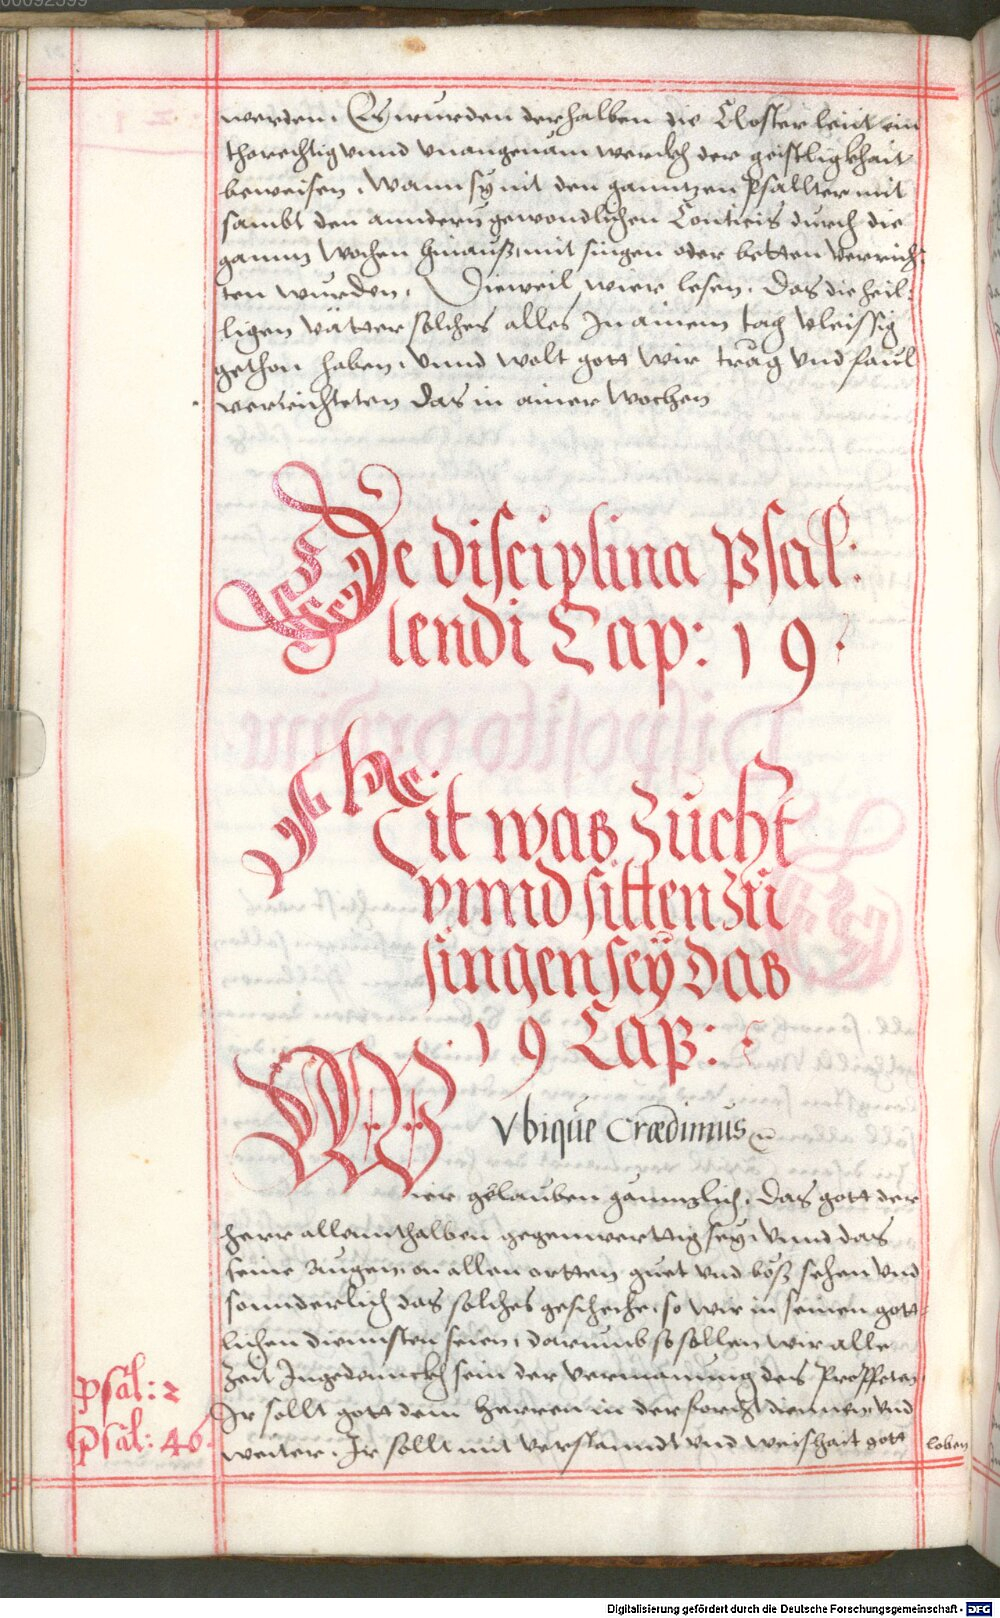 00092599
werden. Es wurden derhalben die Closterleüt ein
thorechtig vnnd vnangenäm werckh der geistligkhait
beweisen, Wann sÿ nit den ganntzen Psallter mit
sambt den anndern gewondlichen Conticis durch die
gannz Wochen hinauß, mit singen oder betten verrich:
ten wurden. Dieweil wier lesen, Das die heil:
ligen Vätter solches alles In ainem tag vleissig
gethon haben, vnnd wolt gott wir träg vnd faul
verrichteten Das in ainer Wochen
De disciplina Psal:
lendi Cap: 19
Mit was Zücht
vnnd sitten zŭ
singen seÿ das
19 Cap:
Vbique Crædimus
Wier gelauben gänntzlich, Das gott der
herr allennthalben gegenwerttig seÿ, Vnnd das
seine Augen, an allen ortten guet vnd böß sehen vnd
sonnderlich das solches geschehe, so wir in seinen gött:
lichen diennsten seien, darumb so sollen wir alle
Zeit Ingedennckh sein der vermanung des Propheten
Ir sollt gott dem Herren in der forcht diennen, vnd
weiter, Ir sollt mit verstanndt vnd weishait gott
loben
Psal: 2
Psal: 46
Digitalisierung gefördert durch die Deutsche Forschungsgemeinschaft - DFG